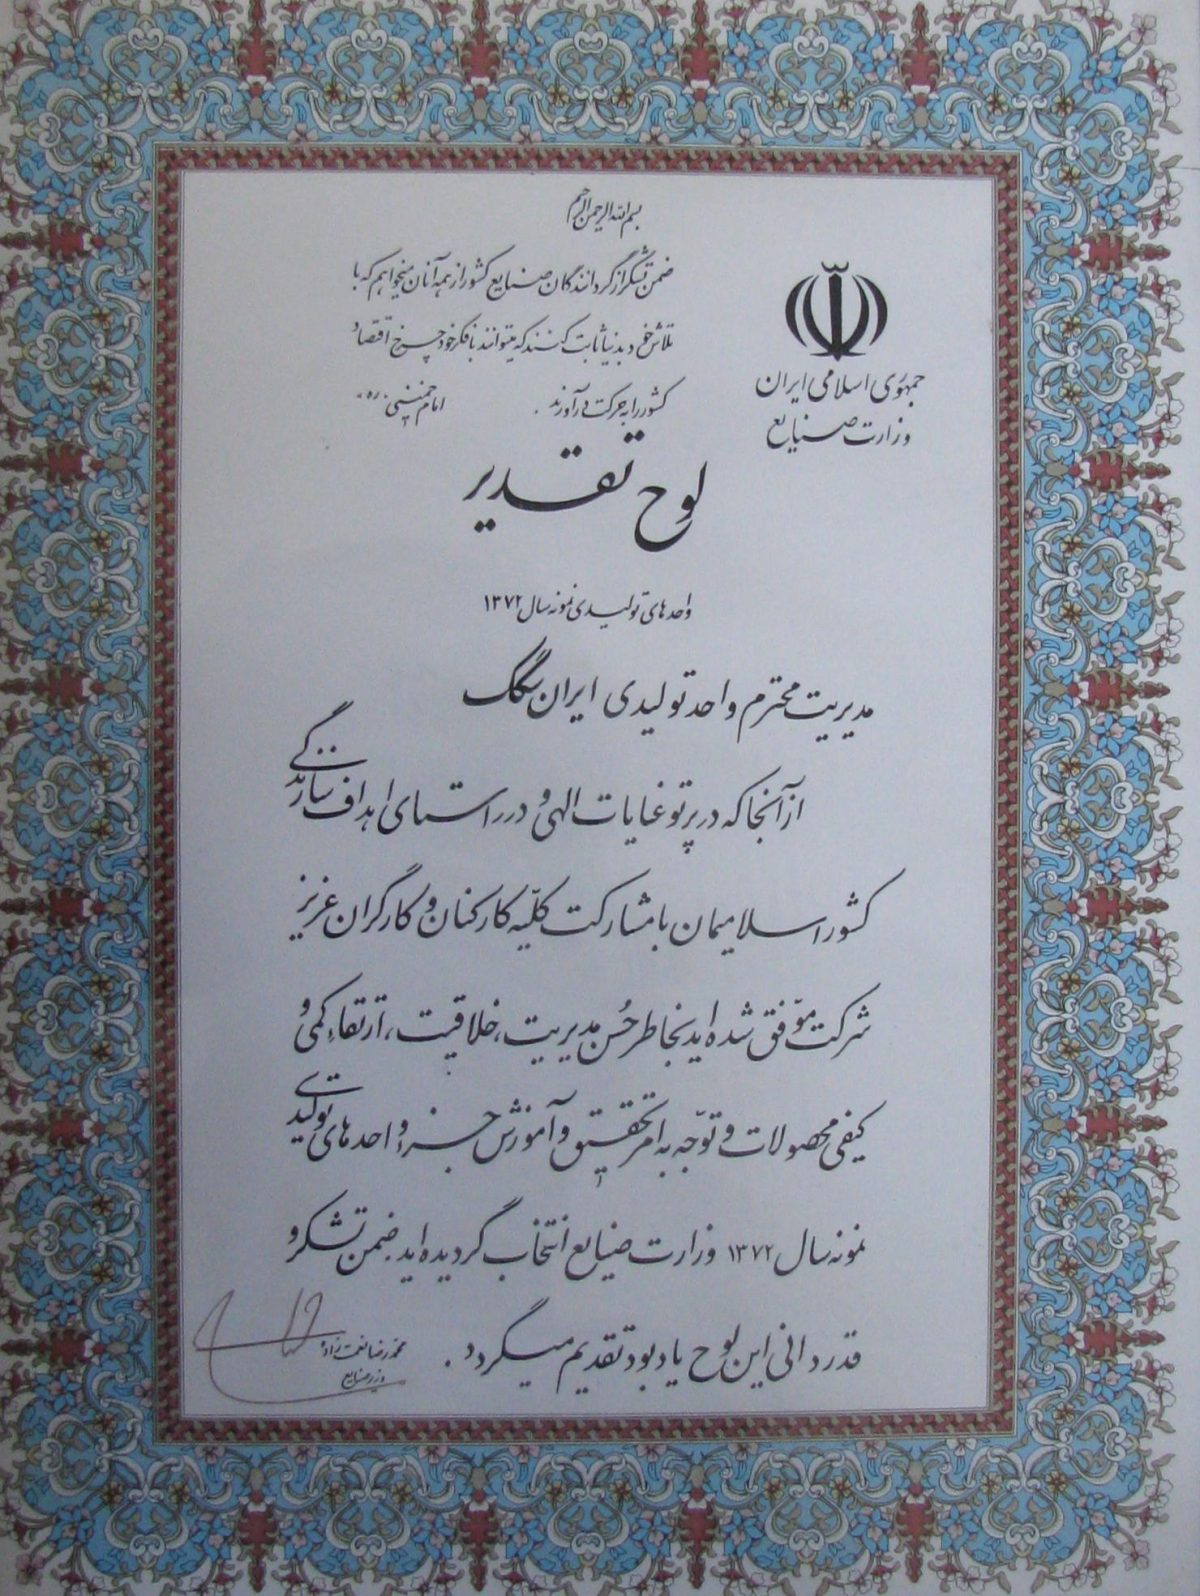 بسم الله الرحمن الرحیم
ضمن تشکر از گردانندگان صنایع کشور از همه آنان میخواهم که با
تلاش خود بدنیا ثابت کنند که میتوانند با فکر خود چرخ اقتصاد
کشور را به حرکت درآورند.
امام خمینی «ره»
جمهوری اسلامی ایران
وزارت صنایع
لوح تقدیر
واحدهای تولیدی نمونه سال ۱۳۷۲
مدیریت محترم واحد تولیدی ایران سگک
از آنجا که در پرتو عنایات الهی و در راستای اهداف سازندگی
کشور اسلامیمان با مشارکت کلیّه کارکنان و کارگران عزیز
شرکت موّفق شده اید بخاطر حُسن مدیریت، خلاقیت، ارتقاءِ کمی و
کیفی محصولات و توّجه به امر تحقیق و آموزش جزء واحدهای تولیدی
نمونه سال ۱۳۷۲ وزارت صنایع انتخاب گردیده اید. ضمن تشکر و
قدردانی این لوح یادبود تقدیم میگردد.
محمدرضا نعمت زاده
وزیر صنایع